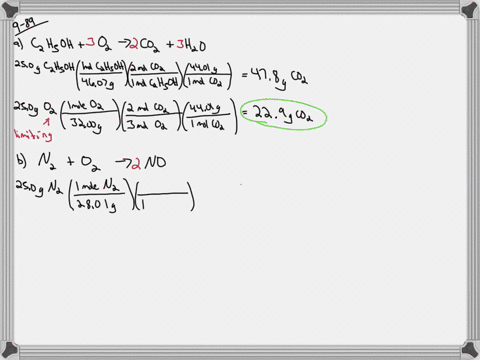 9-89
a) C₂H₅OH + 3O₂ → 2CO₂ + 3H₂O
25.0g C₂H₅OH (1mol C₂H₅OH / 46.07g) (2mol CO₂ / 1mol C₂H₅OH) (44.01g / 1mol CO₂) = 47.8g CO₂
25.0g O₂ (1mole O₂ / 32.00g) (2mol CO₂ / 3mol O₂) (44.01g / 1mol CO₂) = 22.9g CO₂
limiting
b) N₂ + O₂ → 2NO
25.0g N₂ (1mole N₂ / 28.01g) ( / 1 )